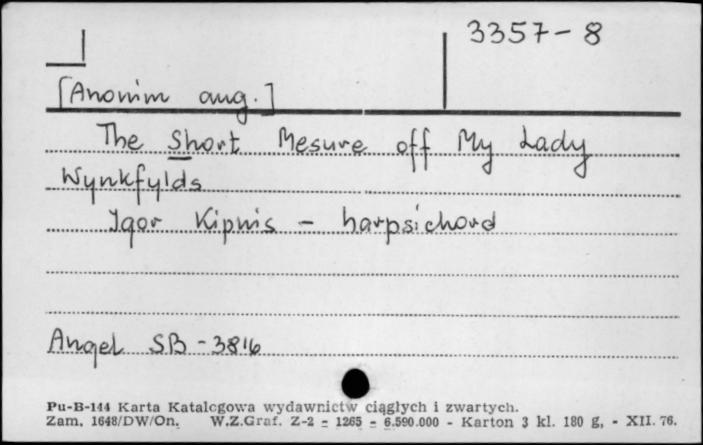 3357-8
[Anonim ang.]
The Short Mesure off My Lady
Wynkfylds
Igor Kipnis - harpsichord
Angel SB-3816
Pu-B-144 Karta Katalogowa wydawnictw ciągłych i zwartych.
Zam. 1648/DW/On. W.Z.Graf. Z-2 - 1265 - 6.590.000 - Karton 3 kl. 180 g, - XII. 76.